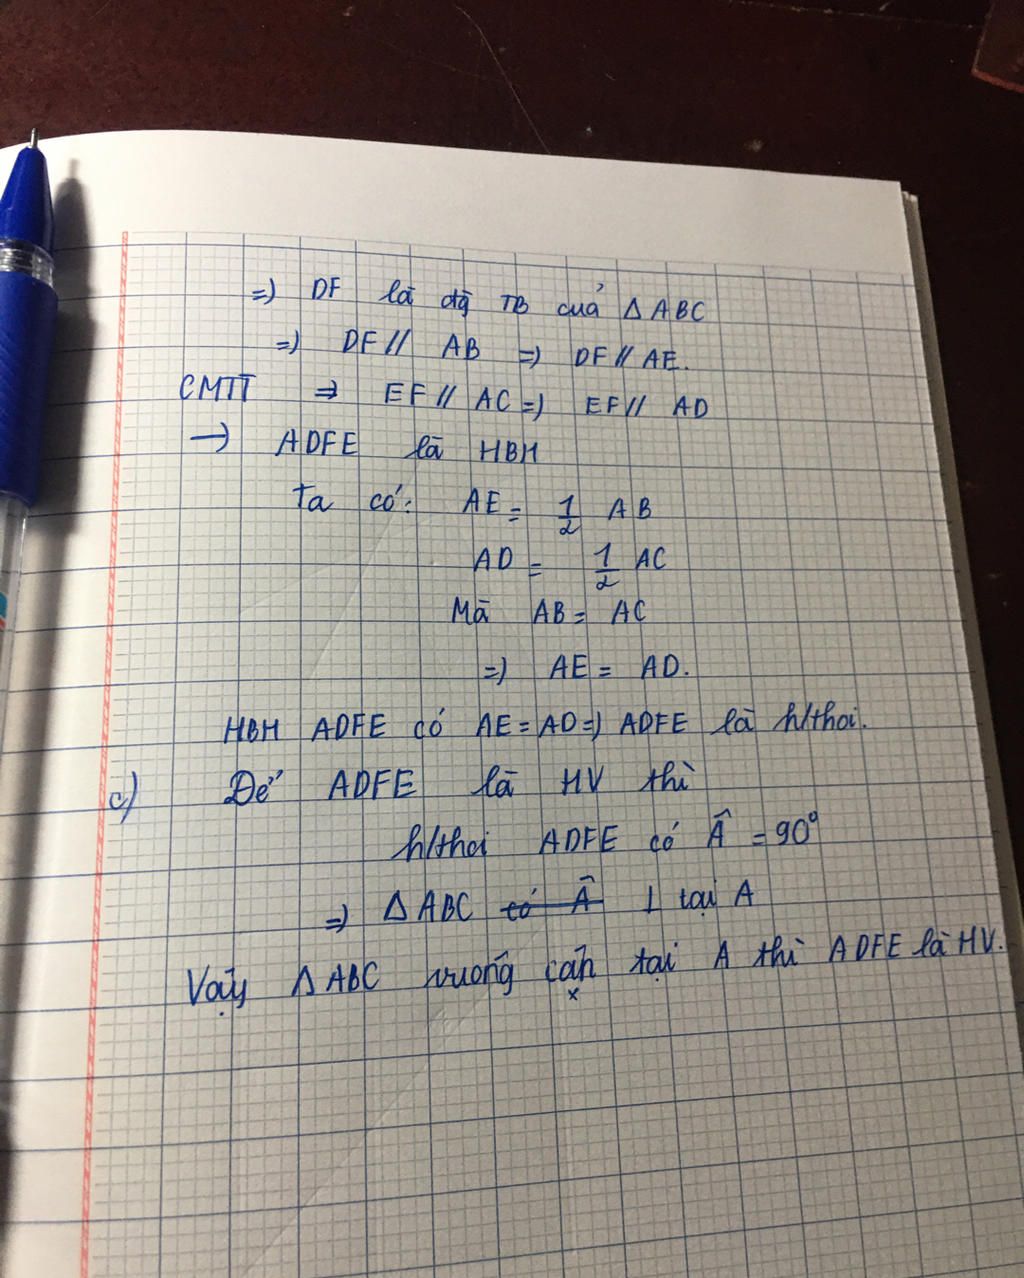 =) DF là đg TB của Δ ABC
=) DF // AB =) DF // AE.
CMTT => EF // AC =) EF // AD
→ ADFE là HBH
Ta có: AE = 1/2 AB
AD = 1/2 AC
Mà AB = AC
=) AE = AD.
HBH ADFE có AE = AD =) ADFE là h/thoi.
c) Để ADFE là HV thì
h/thoi ADFE có Â = 90°
=) Δ ABC có Â ⊥ tại A
Vậy Δ ABC vuông cận tại A thì ADFE là HV.
x